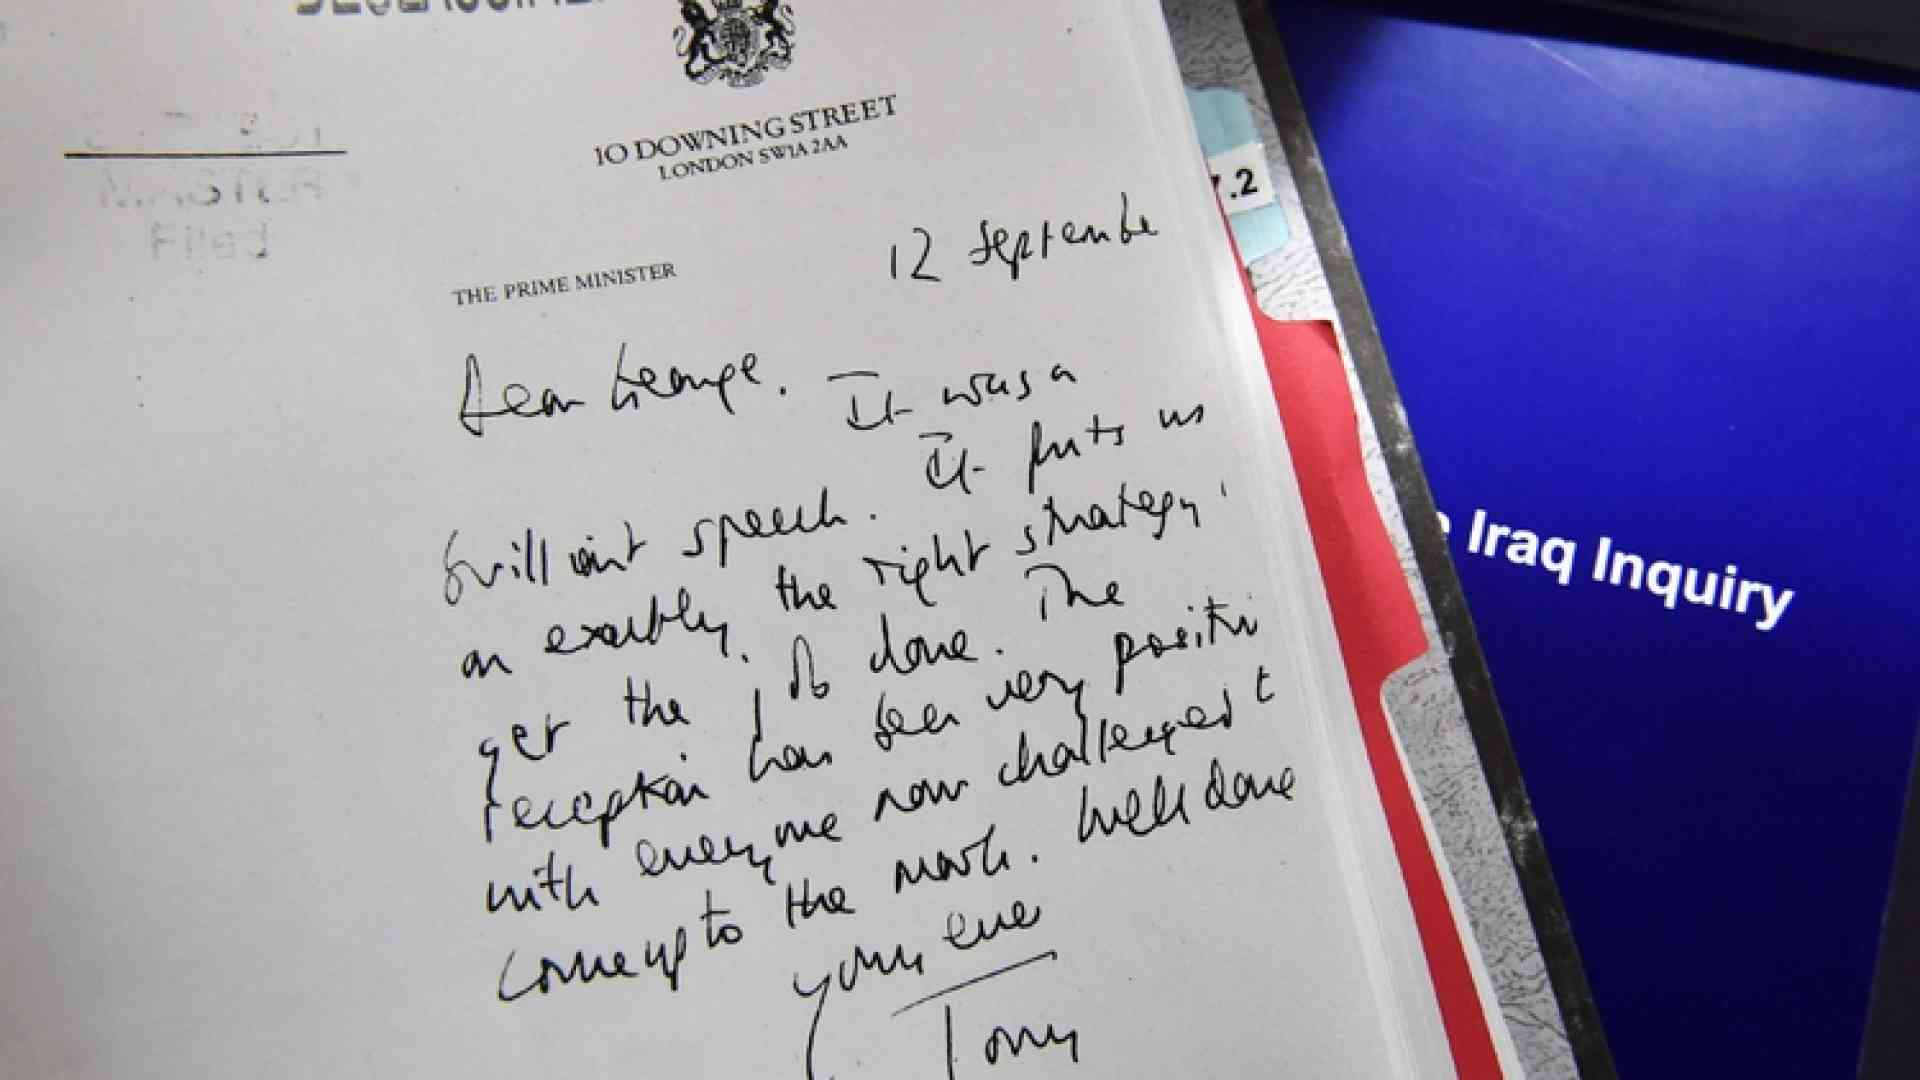 10 DOWNING STREET
LONDON SW1A 2AA
THE PRIME MINISTER
12 September
Dear George. It was a
brilliant speech. It puts us
on exactly the right strategy
get the job done. The
reception has been very positive
with everyone now challenged t
come up to the mark. Well done
yours ever
Tony
7.2
Iraq Inquiry
Filed